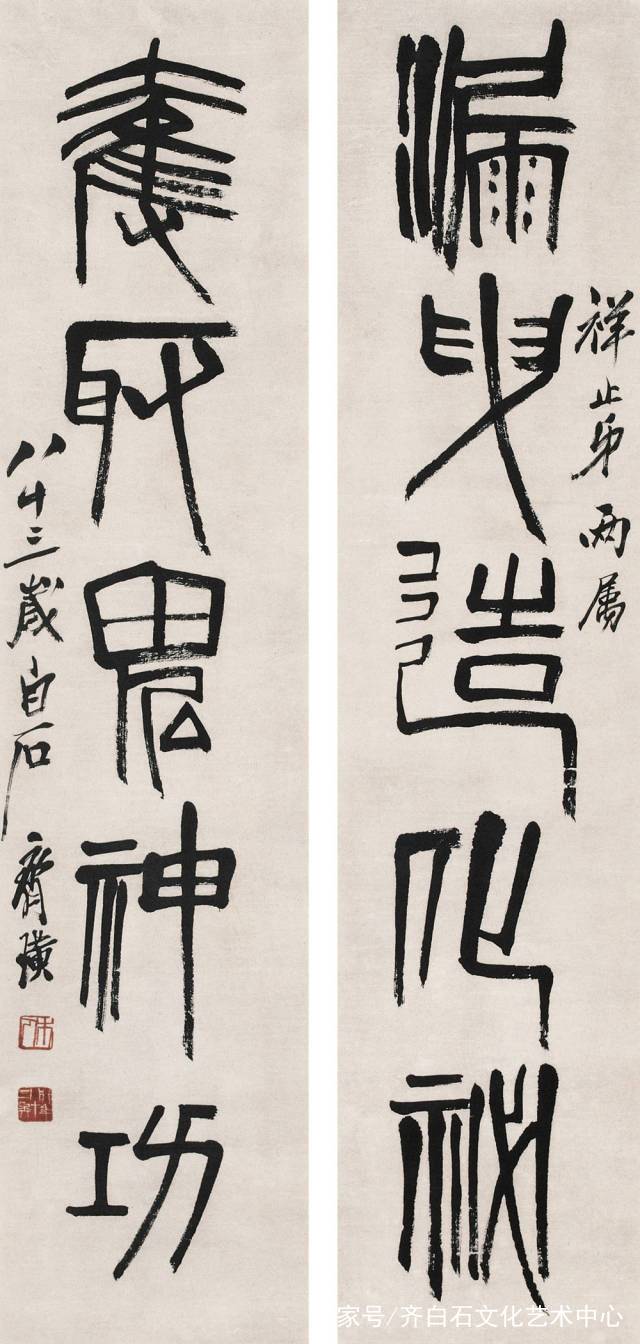 祥止弟两属
漏曳造化秘
奪取鬼神功
八十三歲白石齊璜
家号/齐白石文化艺术中心